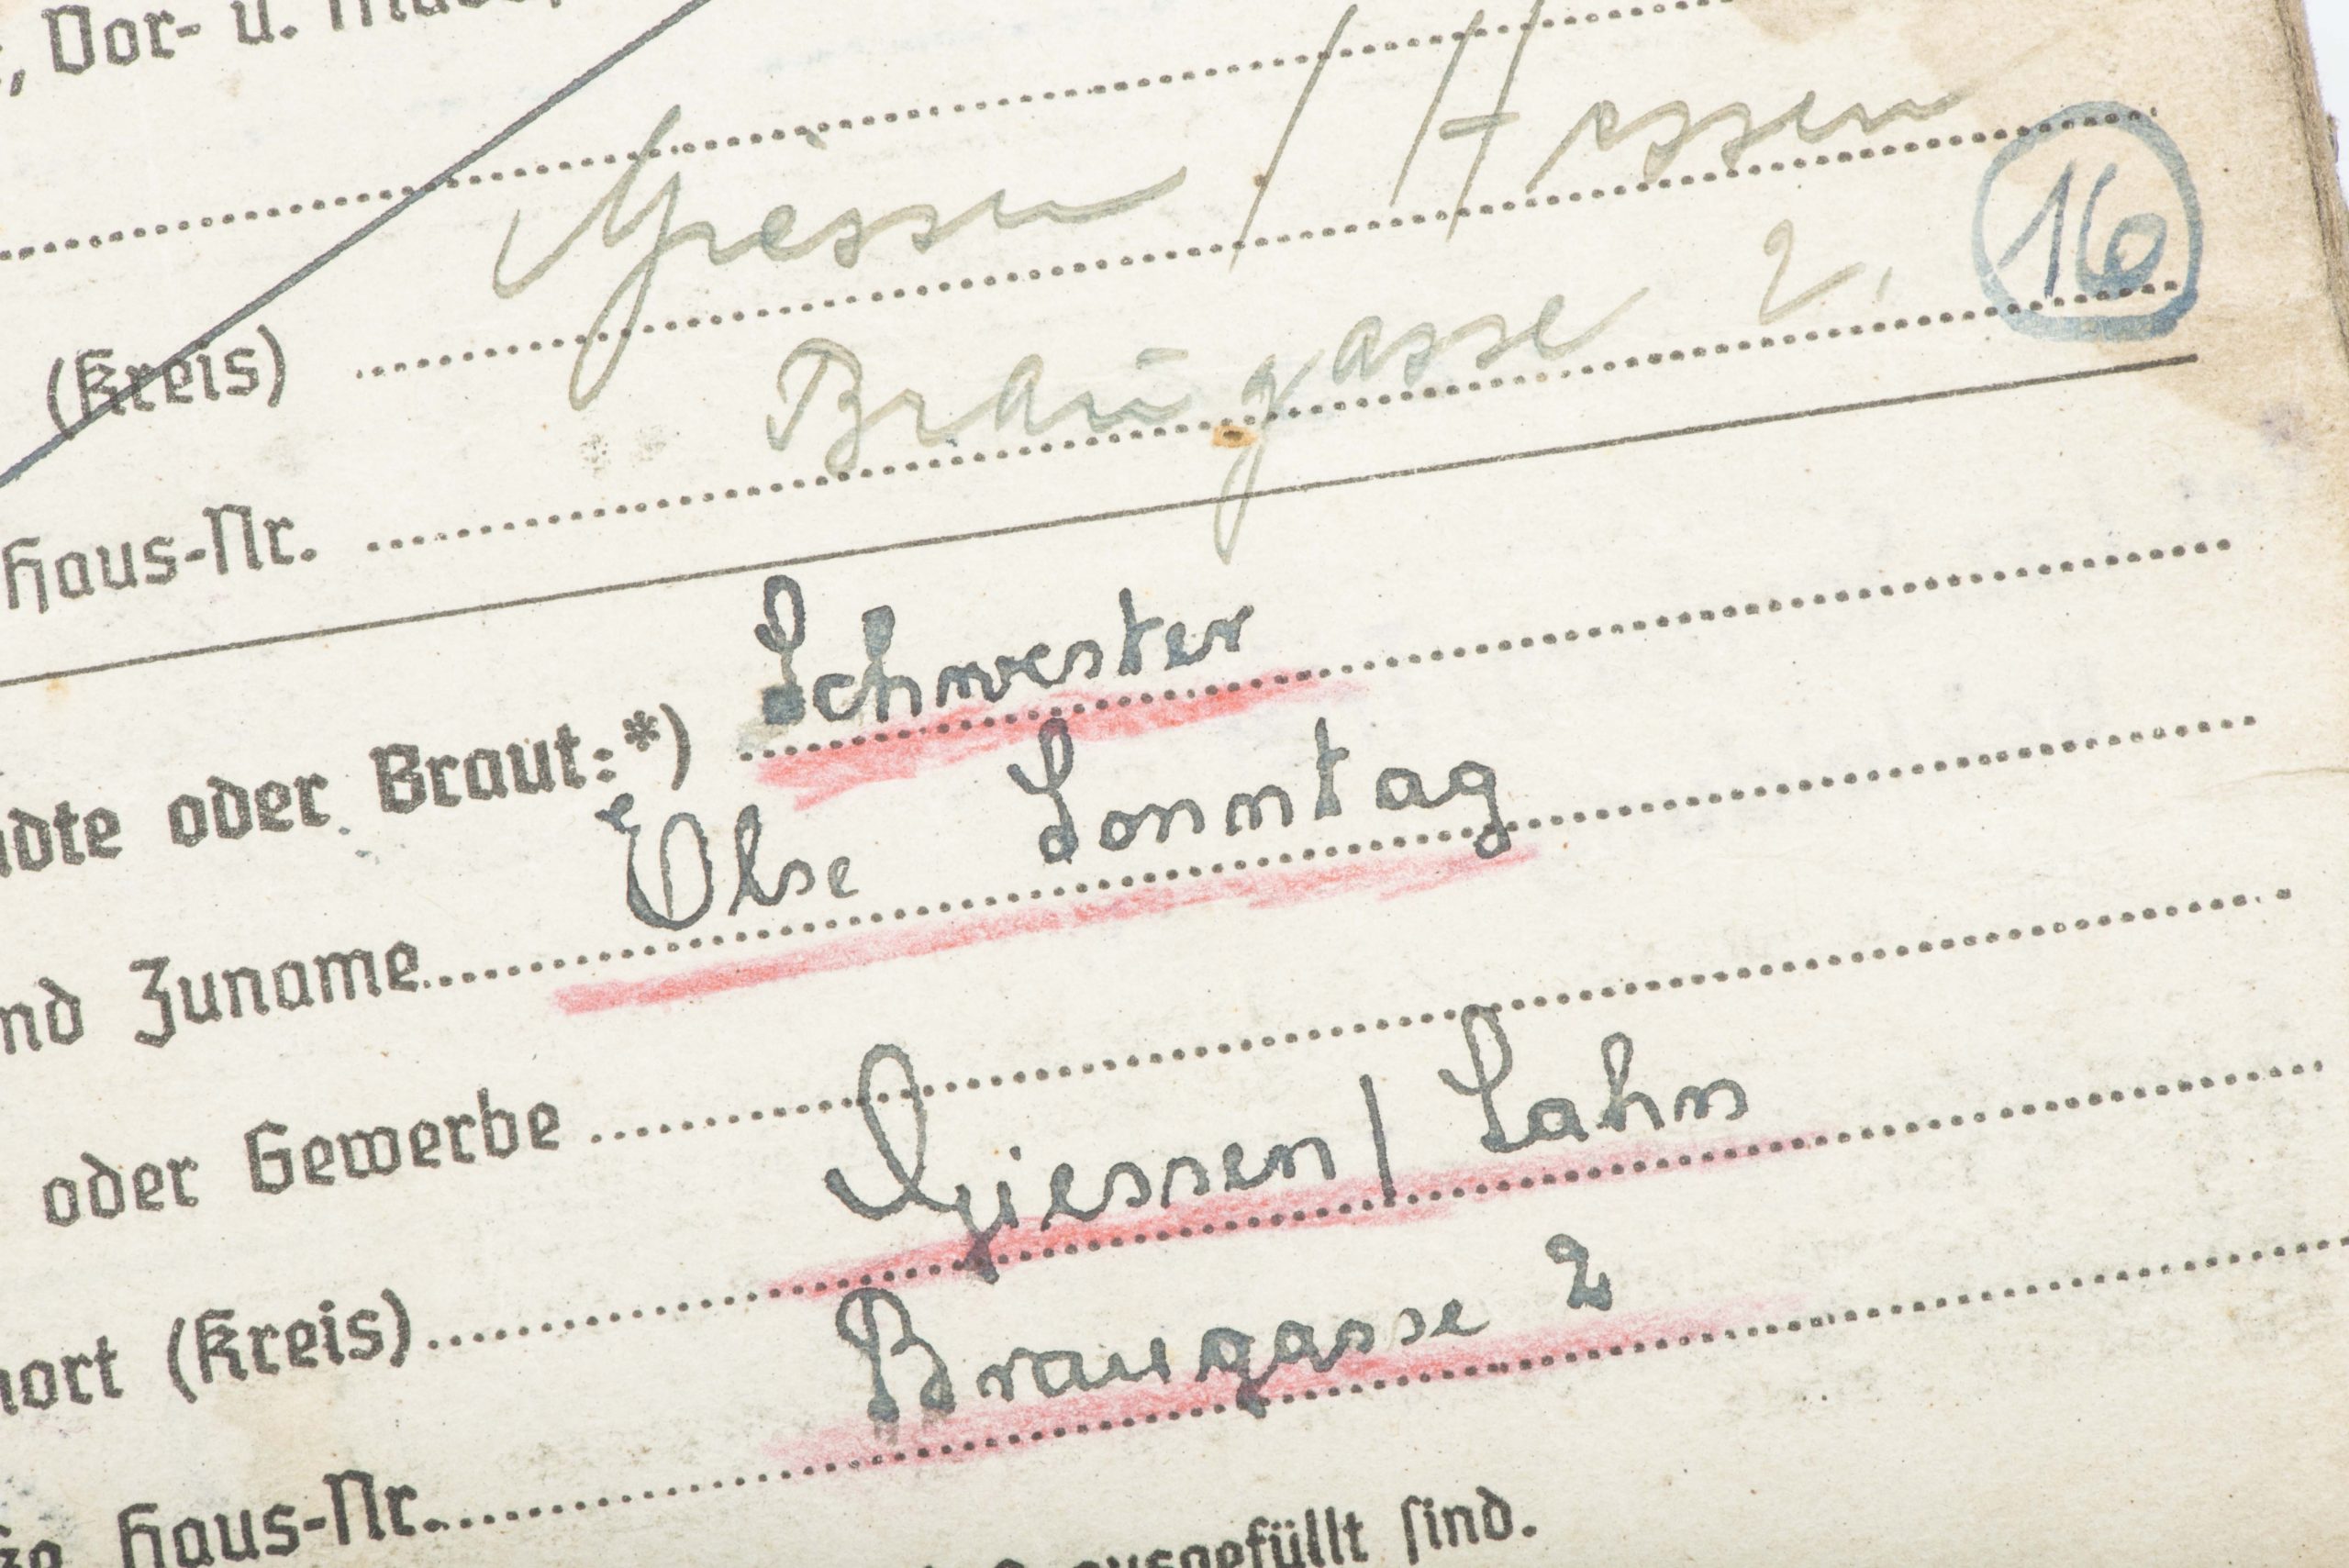 Vor- u.
Giessen / Hessen
(Kreis)
16
Braugasse 2.
Haus-Nr.
Schwester
oder Braut:*)
Else Sonntag
Zuname
oder Gewerbe
Giessen / Lahn
(Kreis)
Braugasse 2
Haus-Nr.
ausgefüllt sind.